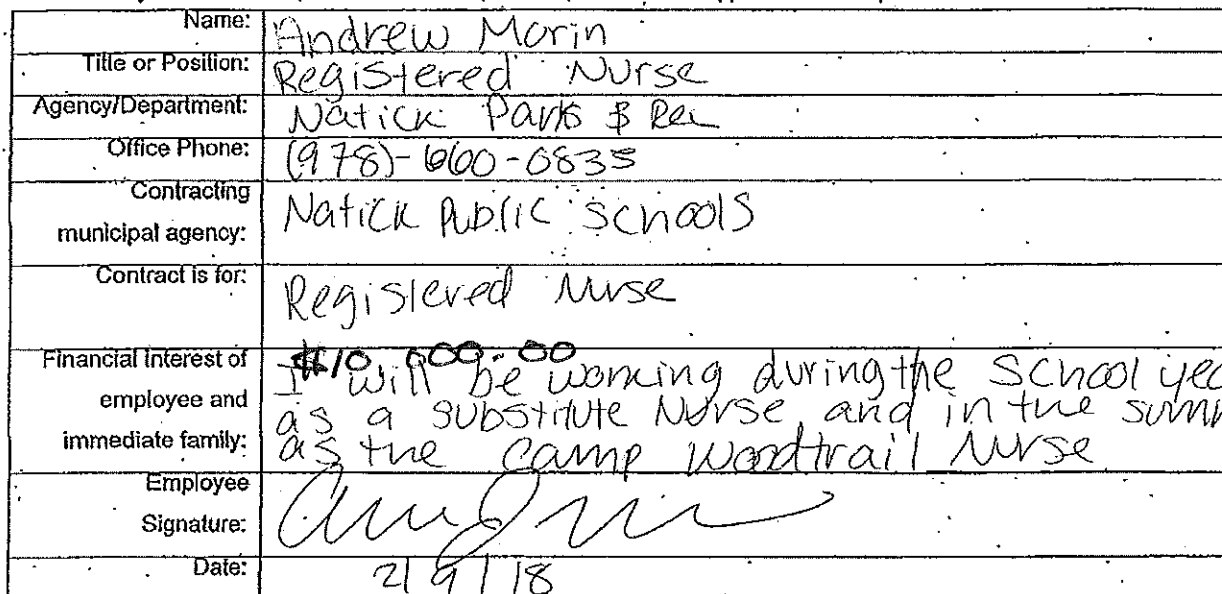 Name: Andrew Morin
Title or Position: Registered Nurse
Agency/Department: Natick Parks & Rec
Office Phone: (978)-660-0835
Contracting
municipal agency: Natick Public Schools
Contract is for: Registered Nurse
$10,000.00
Financial Interest of I will be working during the school yea
employee and as a substitute Nurse, and in the summ
immediate family: as the camp Woodtrail Nurse
Employee
Signature:
Date: 2/9/18